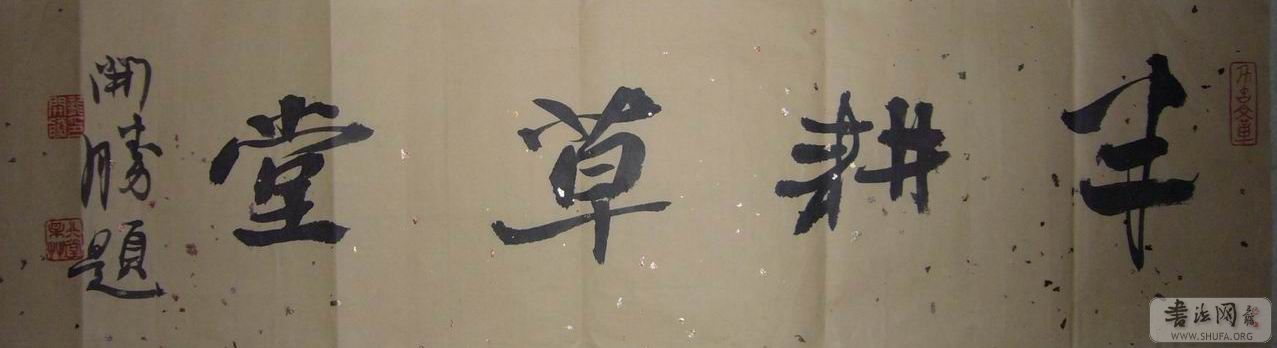 半耕草堂
開勝題
书法网
WWW.SHUFA.ORG